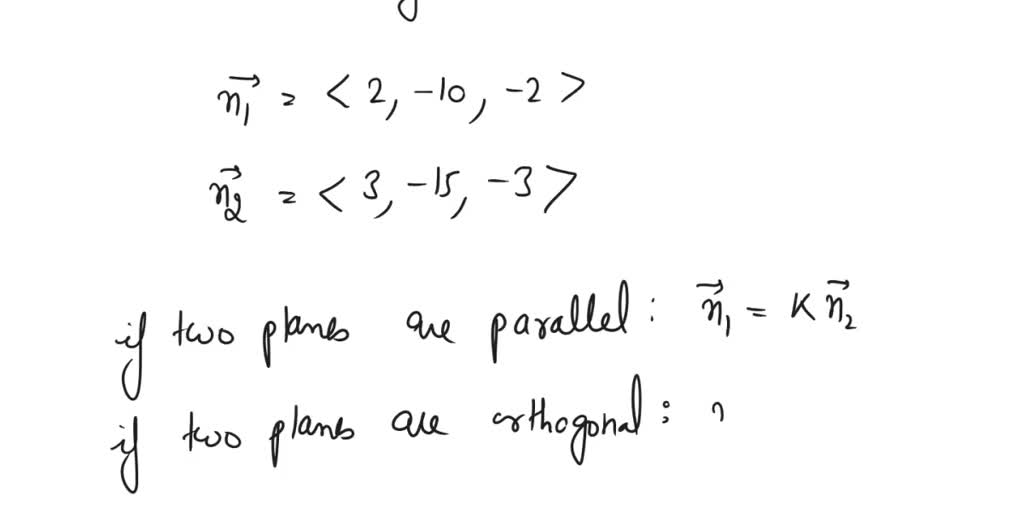 n₁ = < 2, -10, -2 >
n₂ = < 3, -15, -3 >
if two planes are parallel : n₁ = K n₂
if two planes are orthogonal :